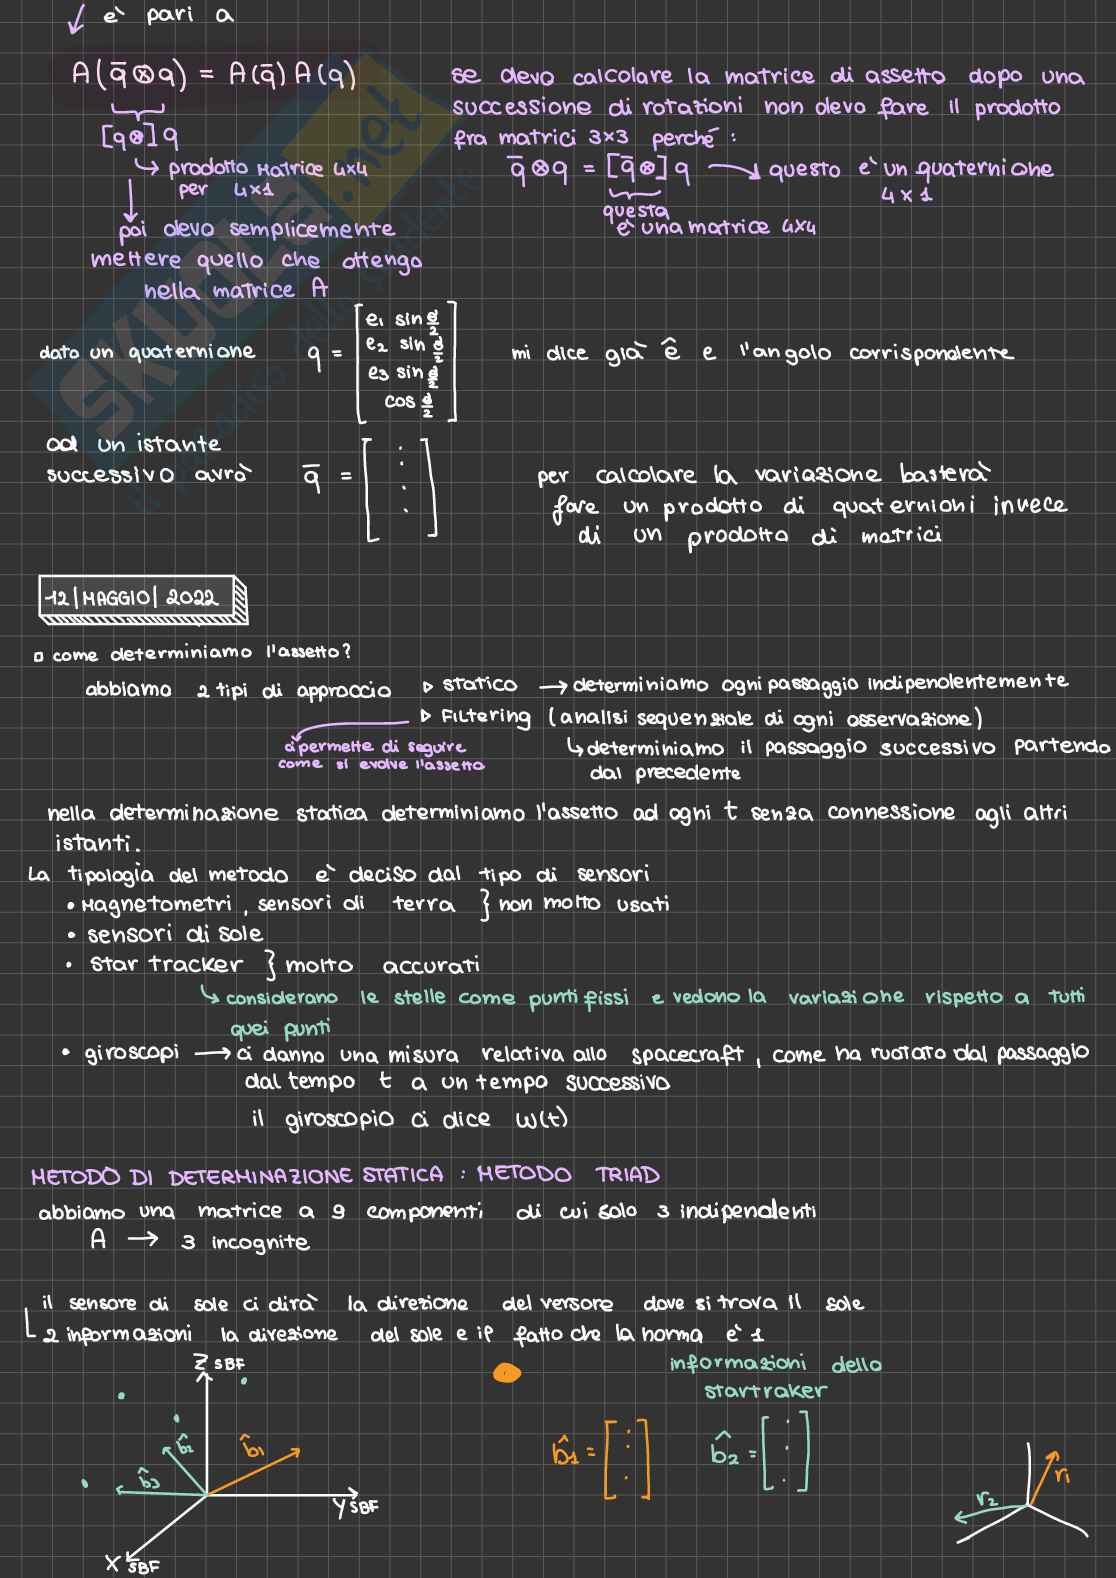 è pari a
A(q̄⊗q) = A(q̄) A(q)
[q⊗] q
prodotto matrice 4x4
per 4x1
poi devo semplicemente
mettere quello che ottengo
nella matrice A
se devo calcolare la matrice di assetto dopo una
successione di rotazioni non devo fare il prodotto
fra matrici 3x3 perché :
q̄⊗q = [q̄⊗] q → questo è un quaternione
4 x 1
questa
è una matrice 4x4
dato un quaternione q = [e₁ sin
e₂ sin
e₃ sin
cos] mi dice già ê e l'angolo corrispondente
ad un istante
successivo avrò q̄ = [⋮]
per calcolare la variazione basterà
fare un prodotto di quaternioni invece
di un prodotto di matrici
12 | MAGGIO | 2022
come determiniamo l'assetto?
abbiamo 2 tipi di approccio ▷ statico → determiniamo ogni passaggio indipendentemente
▷ Filtering (analisi sequenziale di ogni osservazione)
ci permette di seguire
come si evolve l'assetto
↳ determiniamo il passaggio successivo partendo
dal precedente
nella determinazione statica determiniamo l'assetto ad ogni t senza connessione agli altri
istanti.
La tipologia del metodo è deciso dal tipo di sensori
• Magnetometri, sensori di terra } non molto usati
• sensori di sole
• star tracker } molto accurati
↳ considerano le stelle come punti fissi e vedono la variazione rispetto a tutti
quei punti
• giroscopi → ci danno una misura relativa allo spacecraft, come ha ruotato dal passaggio
dal tempo t a un tempo successivo
il giroscopio ci dice ω(t)
METODO DI DETERMINAZIONE STATICA : METODO TRIAD
abbiamo una matrice a 9 componenti di cui solo 3 indipendenti
A → 3 incognite
il sensore di sole ci dirà la direzione del versore dove si trova il sole
2 informazioni la direzione del sole e il fatto che la norma è 1
Z SBF
informazioni dello
startraker
b̂₁
b̂₂
b̂₃
Y SBF
X SBF
b̂₁ = [⋮]
b̂₂ = [⋮]
r₁
r₂
SKUOLA.net